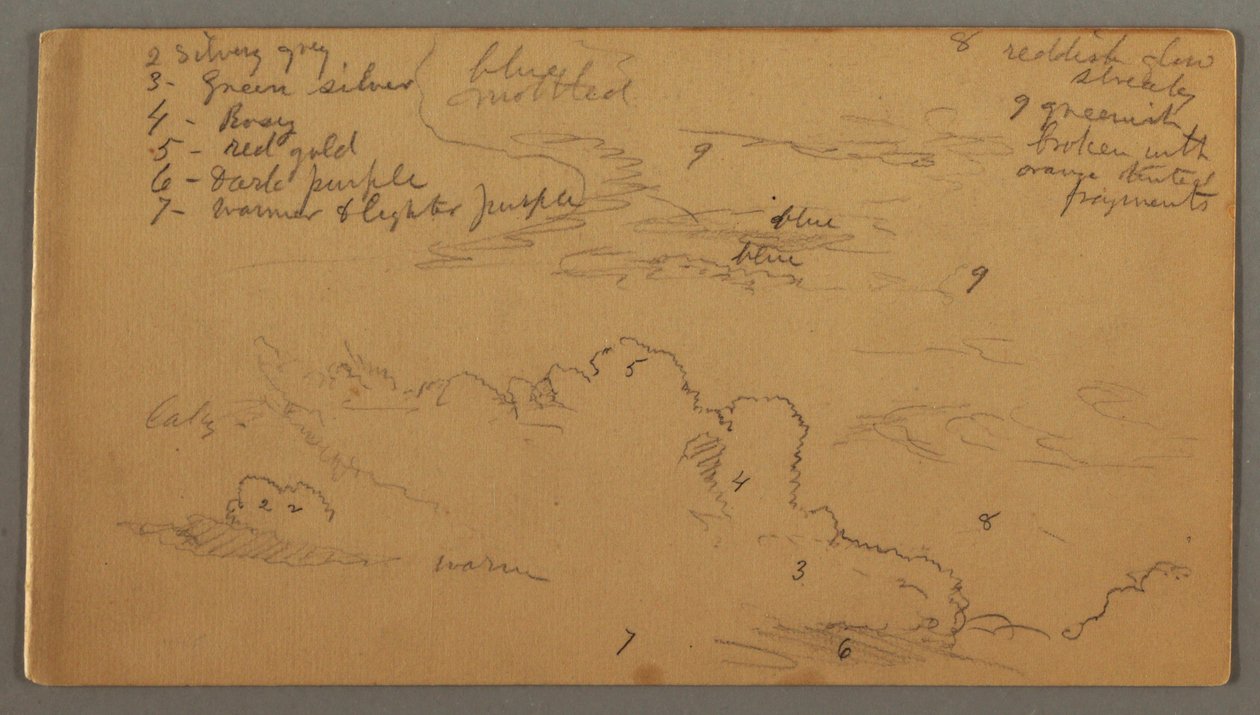 2 Silvery grey
3 - Green silver
4 - Rosy
5 - red gold
6 - Dark purple
7 - warmer & lighter purple
blue
mottled
8 reddish glow
streaky
9 greenish
broken with
orange tinted
fragments
9
blue
blue
9
5
4
2 2
8
warm
3
7
6